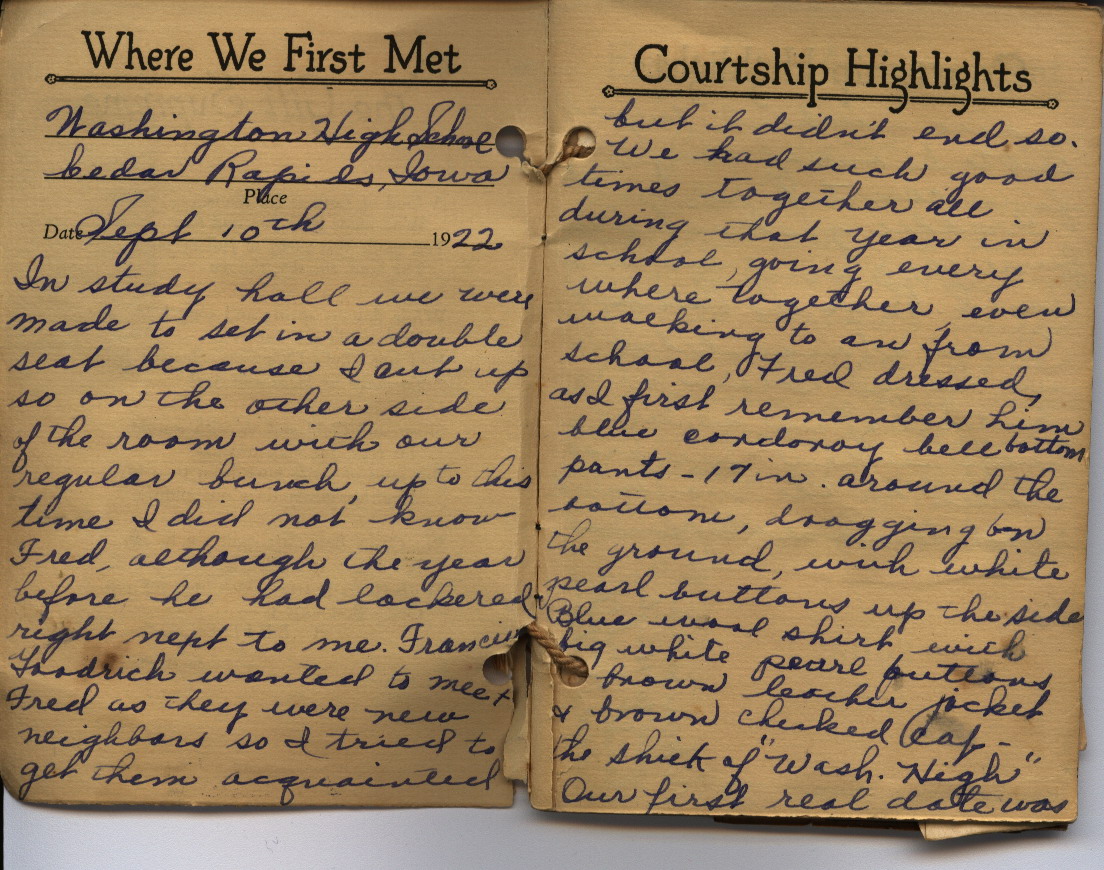 Where We First Met
Washington High School
Cedar Rapids, Iowa
Place
Date Sept 10th 1922
In study hall we were
made to set in a double
seat because I cut up
so on the other side
of the room with our
regular bunch, up to this
time I did not know
Fred, although the year
before he had lockered
right nept to me. Francis
Goodrich wanted to meet
Fred as they were new
neighbors so I tried to
get them acquainted
Courtship Highlights
but it didn't end so.
We had such good
times together all
during that year in
school, going every
where together, even
walking to an from
school, Fred dressed,
as I first remember him
blue cordoroy bell bottom
pants - 17 in. around the
bottom, dragging on
the ground, with white
pearl buttons up the side
Blue wool shirt with
big white pearl buttons
brown leather jacket
& brown checked cap -
the shiek of "Wash. High"
Our first real date was